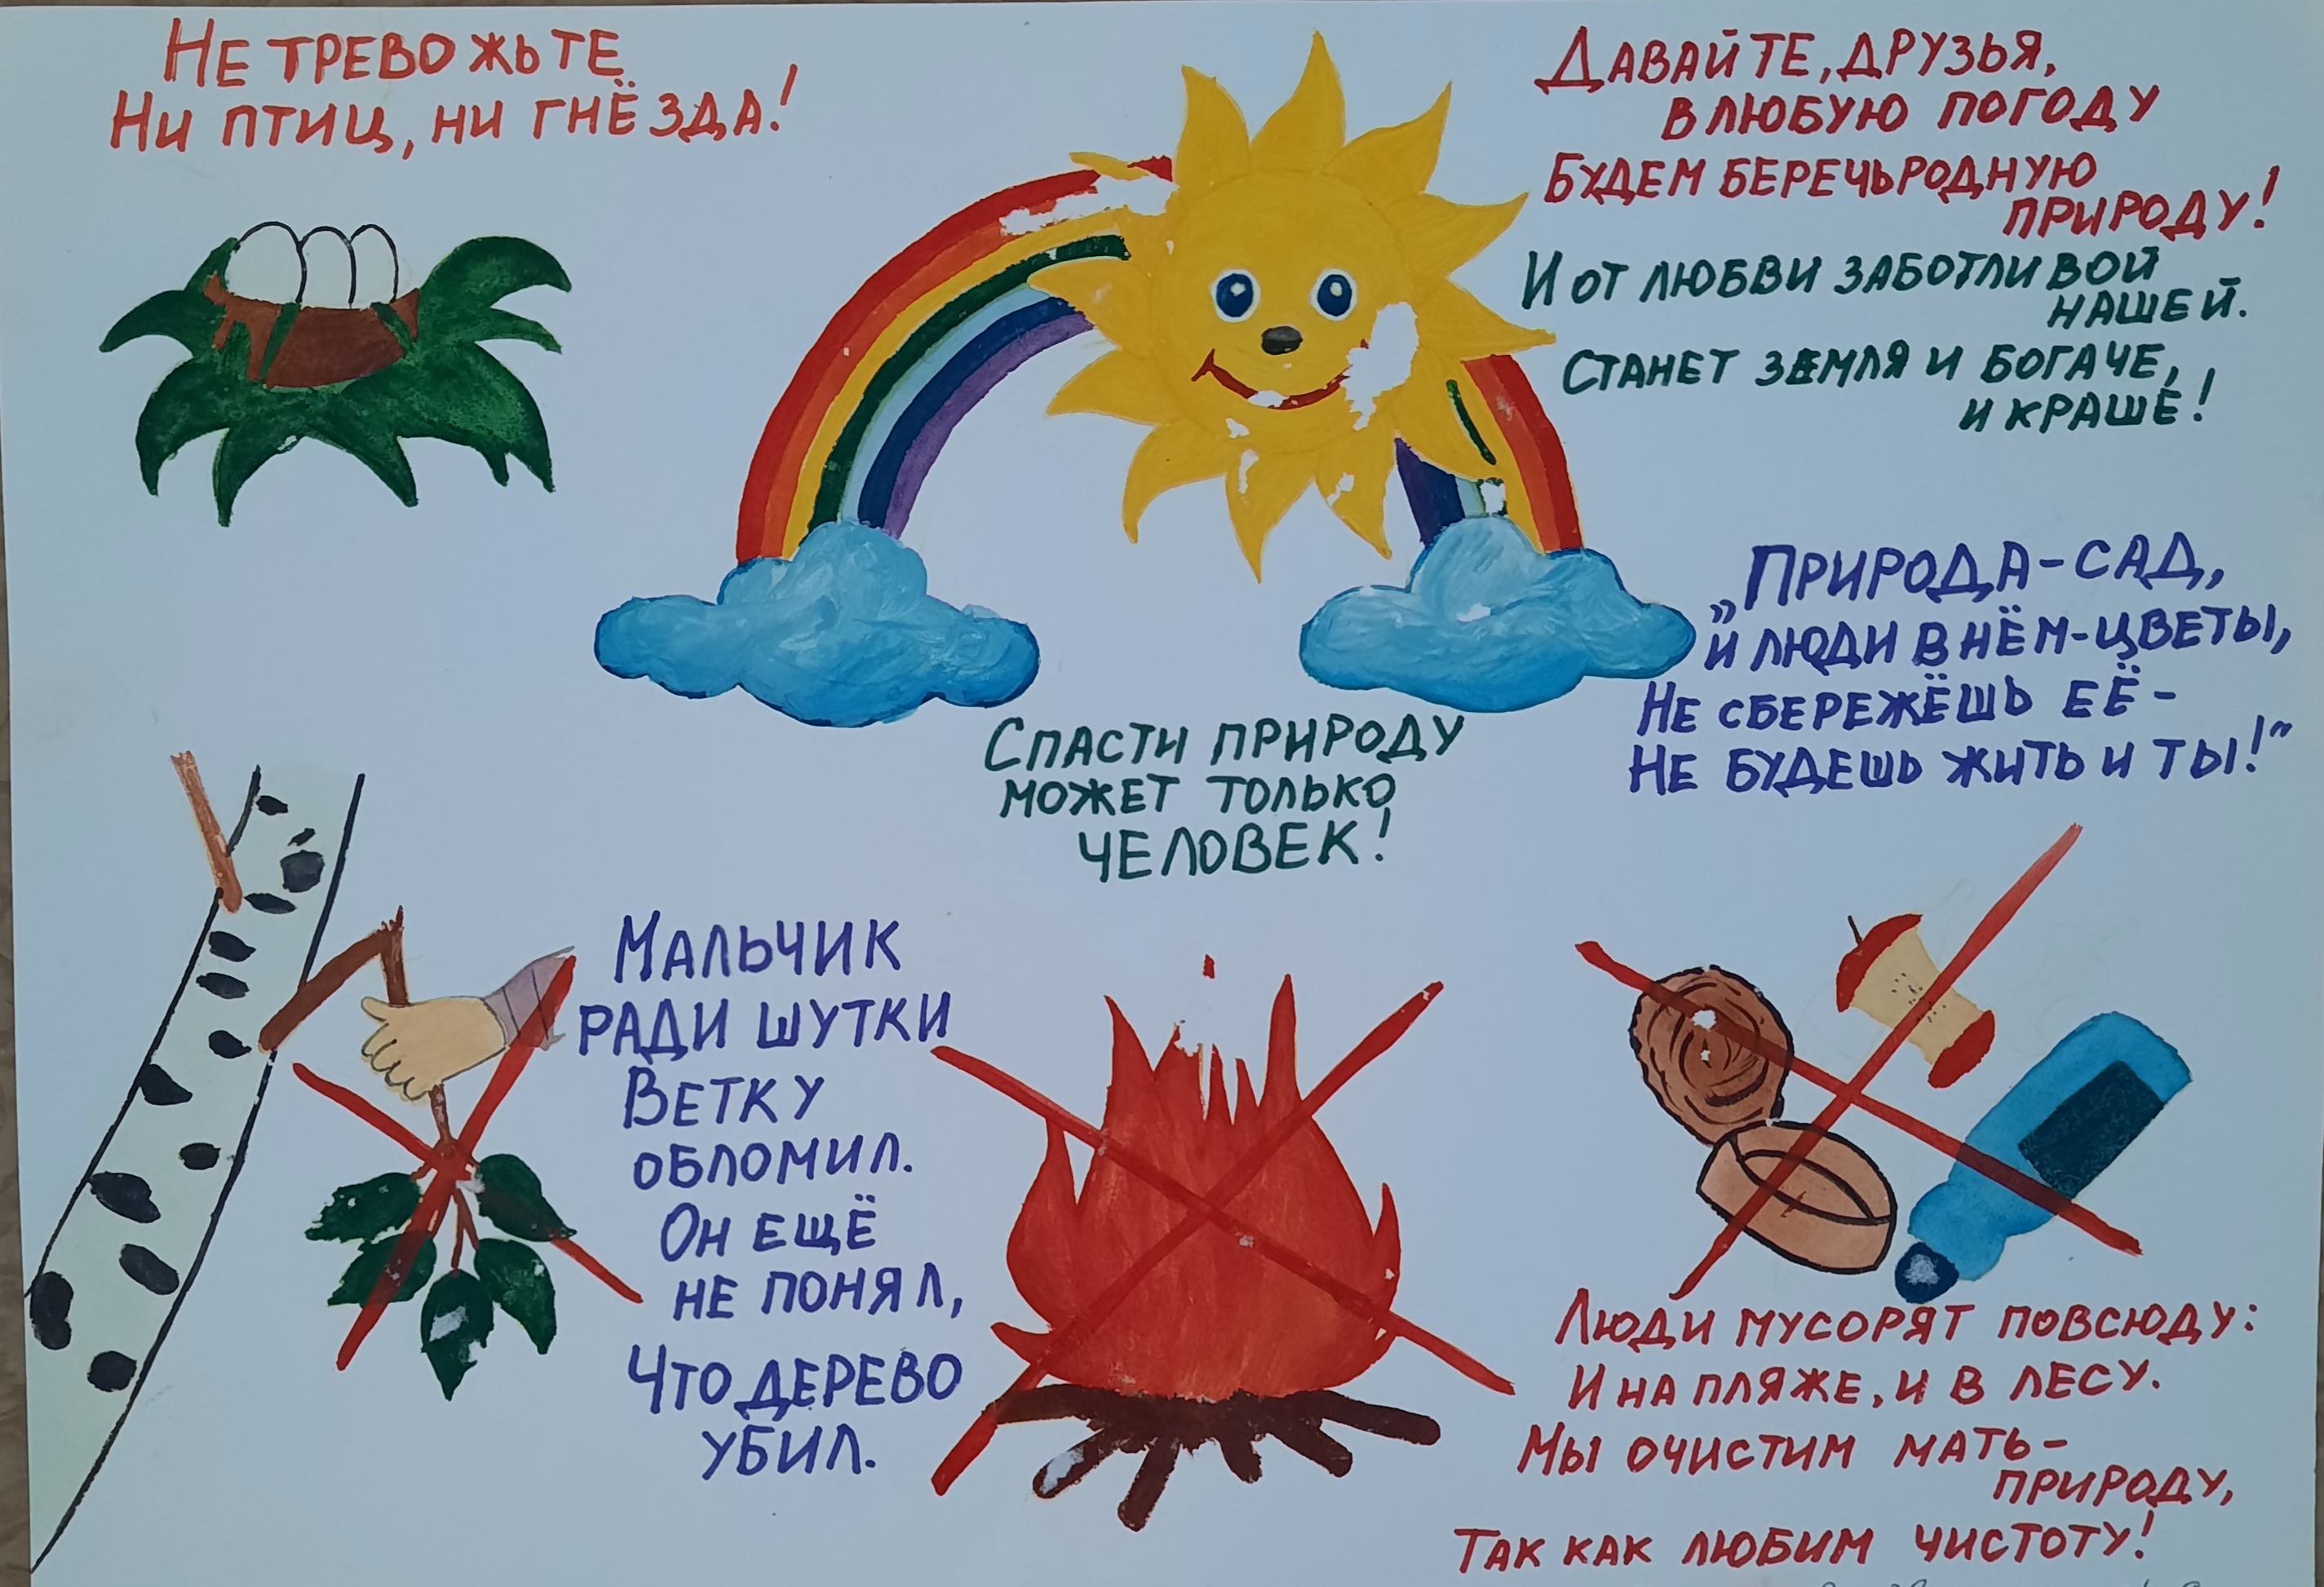 НЕ ТРЕВОЖЬТЕ
НИ ПТИЦ, НИ ГНЁЗДА!
ДАВАЙТЕ, ДРУЗЬЯ,
В ЛЮБУЮ ПОГОДУ
БУДЕМ БЕРЕЧЬ РОДНУЮ
ПРИРОДУ!
И ОТ ЛЮБВИ ЗАБОТЛИВОЙ
НАШЕЙ.
СТАНЕТ ЗЕМЛЯ И БОГАЧЕ,
И КРАШЕ!
„ПРИРОДА-САД,
И ЛЮДИ В НЁМ-ЦВЕТЫ,
НЕ СБЕРЕЖЁШЬ ЕЁ-
НЕ БУДЕШЬ ЖИТЬ И ТЫ!"
СПАСТИ ПРИРОДУ
МОЖЕТ ТОЛЬКО
ЧЕЛОВЕК!
МАЛЬЧИК
РАДИ ШУТКИ
ВЕТКУ
ОБЛОМИЛ.
ОН ЕЩЁ
НЕ ПОНЯЛ,
ЧТО ДЕРЕВО
УБИЛ.
ЛЮДИ МУСОРЯТ ПОВСЮДУ:
И НА ПЛЯЖЕ, И В ЛЕСУ.
МЫ ОЧИСТИМ МАТЬ-
ПРИРОДУ,
ТАК КАК ЛЮБИМ ЧИСТОТУ!